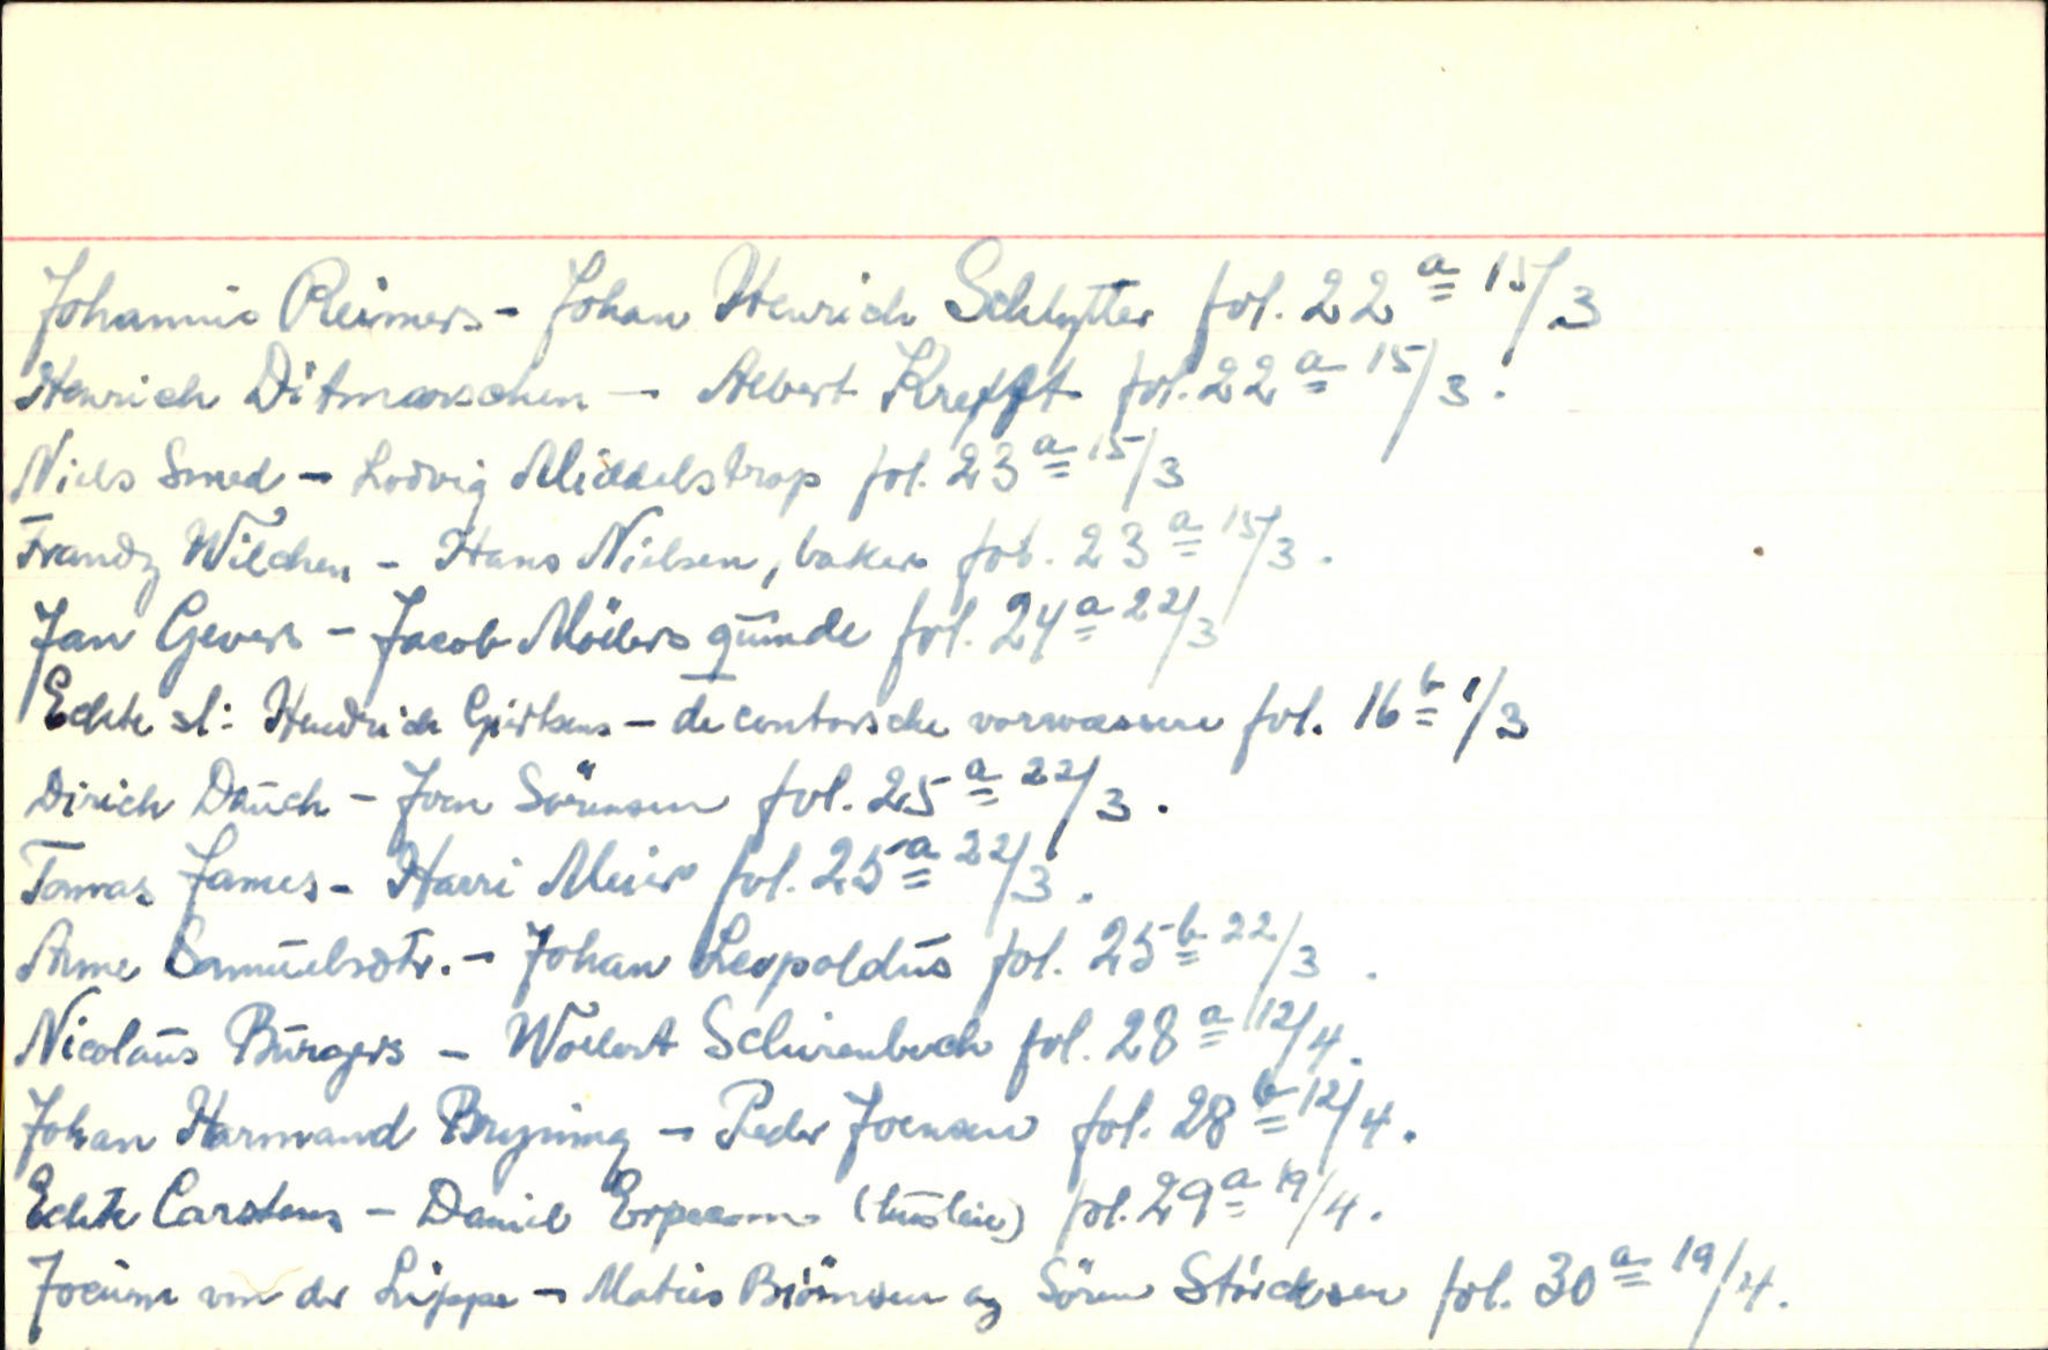 Johannis Reimers - Johan Henrich Schlytter fol. 22 a 15/3
Henrich Ditmarschen - Albert Krefft fol. 22 a 15/3.
Niels Smed - Lodvig Middelstrop fol. 23 a 15/3
Frandz Wilchen - Hans Nielsen, baker fol. 23 a 15/3.
Jan Gevers - Jacob Möllers qŭinde fol. 24 a 22/3
Echte sl: Hendrich - de contorsche vorwassere fol. 16 b 1/3
Dirich Daŭch - Joen Sörensen fol. 25 a 22/3.
Tomas James - Harri Meier fol. 25 a 22/3.
Anne Samŭelsdtr. - Johan Leopoldŭs fol. 25 b 22/3.
Nicolaŭs Bŭrgers - Wollert Schirenbech fol. 28 a 12/4.
Johan Harmand Bryning - Peder Joensen fol. 28 b 12/4.
Echte Carstens - Daniel (hŭsleie) fol. 29 a 19/4.
Jocŭm von der Lippe - Matias Biörnsen og Sören Störchsen fol. 30 a 19/4.